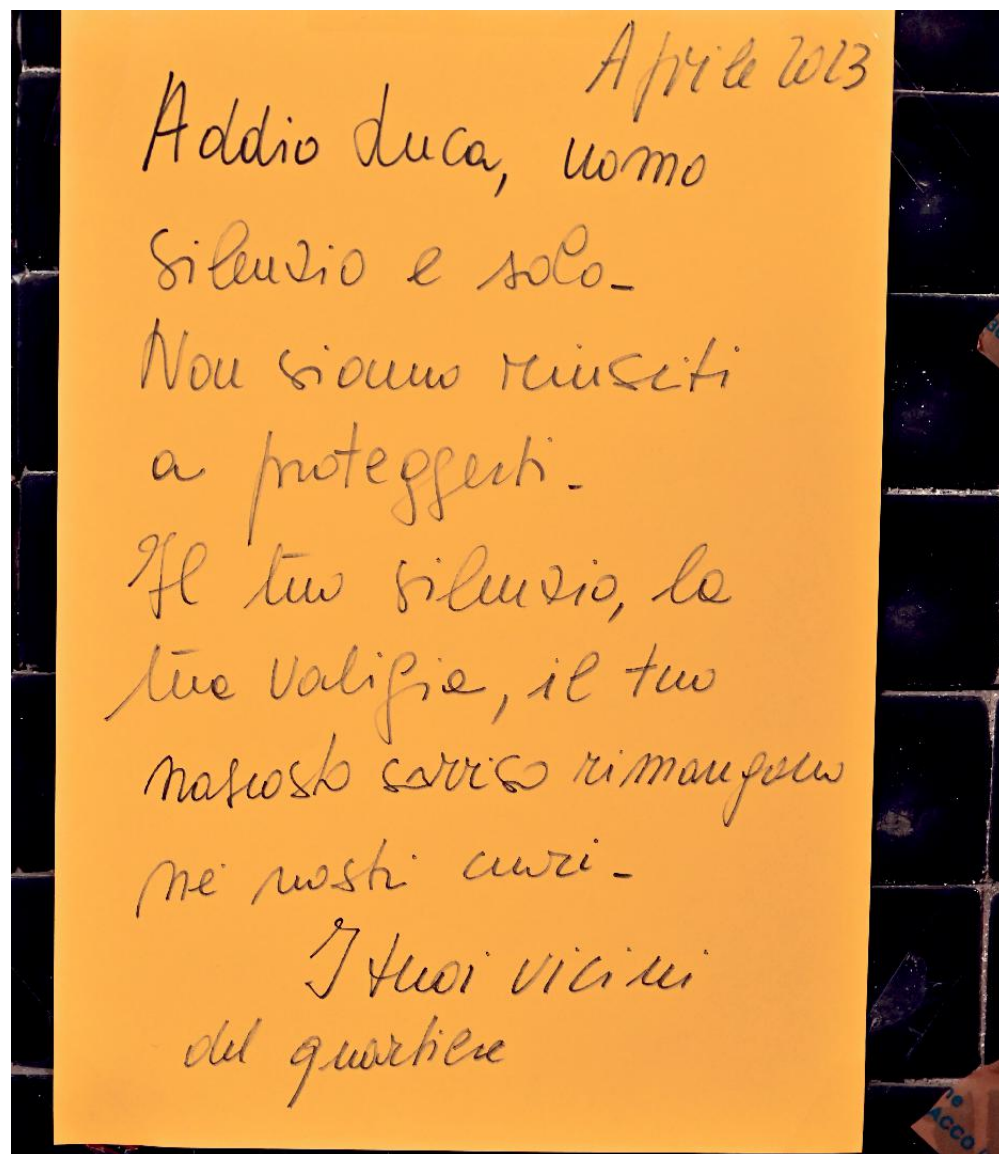 Aprile 2023
Addio Luca, uomo
silenzio e solo -
Non siamo riusciti
a proteggerti -
Il tuo silenzio, la
tua valigia, il tuo
nascosto sorriso rimangono
nei nostri cuori -
I tuoi vicini
del quartiere
ACCO